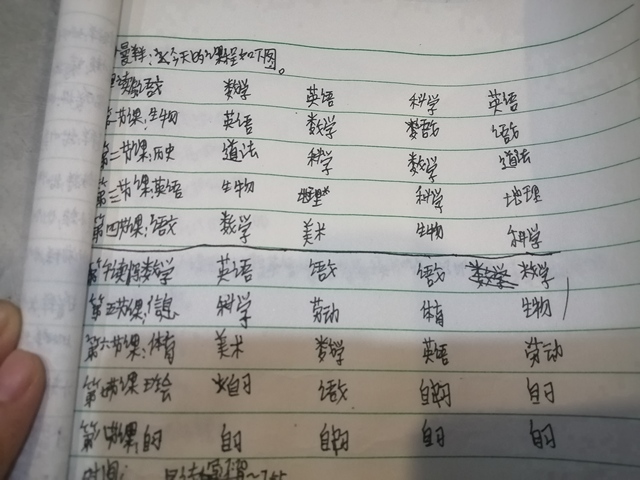 今天的课程如下图。
早读:语文 数学 英语 科学 英语
第一节课:生物 英语 数学 语文
第二节课:历史 道法 科学 数学 道法
第三节课:英语 生物 地理 科学 地理
第四节课:语文 数学 美术 生物 科学
午读:数学 英语 语文 语文 数学
第五节课:信息 科学 劳动 体育 生物
第六节课:体育 美术 数学 英语 劳动
第七节课:班会 自习 语文 自习 自习
第八节课:自习 自习 自习 自习 自习
时间: